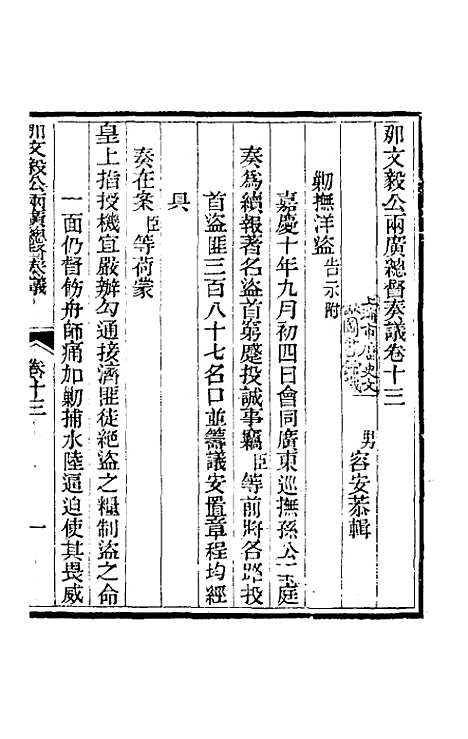 那文毅公兩廣總督奏議卷十三
男 容安恭輯
勦撫洋盜告示附
嘉慶十年九月初四日會同廣東巡撫孫公玉庭
奏為續報著名盜首窮蹙投誠事竊臣等前將各路投
首盜匪三百八十七名口並籌議安置章程均經
具
奏在案臣等荷蒙
皇上指授機宜嚴辦勾通接濟匪徒絕盜之糧制盜之命
一面仍督飭舟師痛加勦捕水陸逼迫使其畏威
那文毅公兩廣總督奏議 卷十三 一